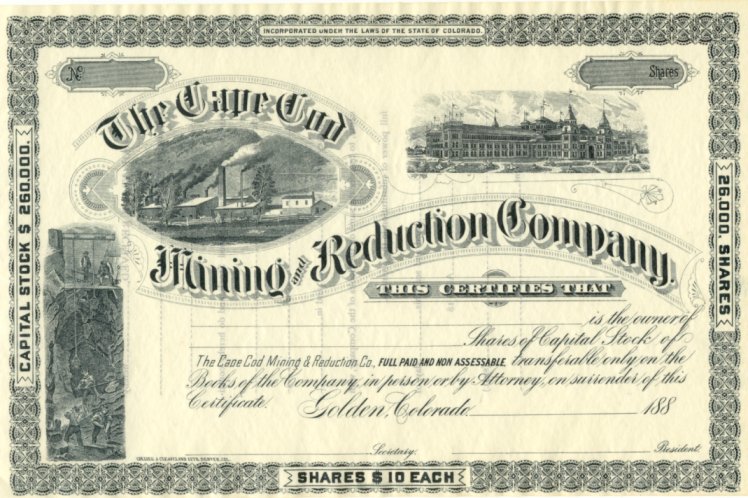 INCORPORATED UNDER THE LAWS OF THE STATE OF COLORADO.
No
Shares
The Cape Cod
Mining and Reduction Company.
CAPITAL STOCK $ 260,000.
26,000. SHARES
THIS CERTIFIES THAT
is the owner of
Shares of Capital Stock of
The Cape Cod Mining & Reduction Co., FULL PAID AND NON ASSESSABLE, transferable only on the
Books of the Company, in person or by Attorney, on surrender of this
Certificate. Golden, Colorado 188
Secretary. President.
SHARES $10 EACH